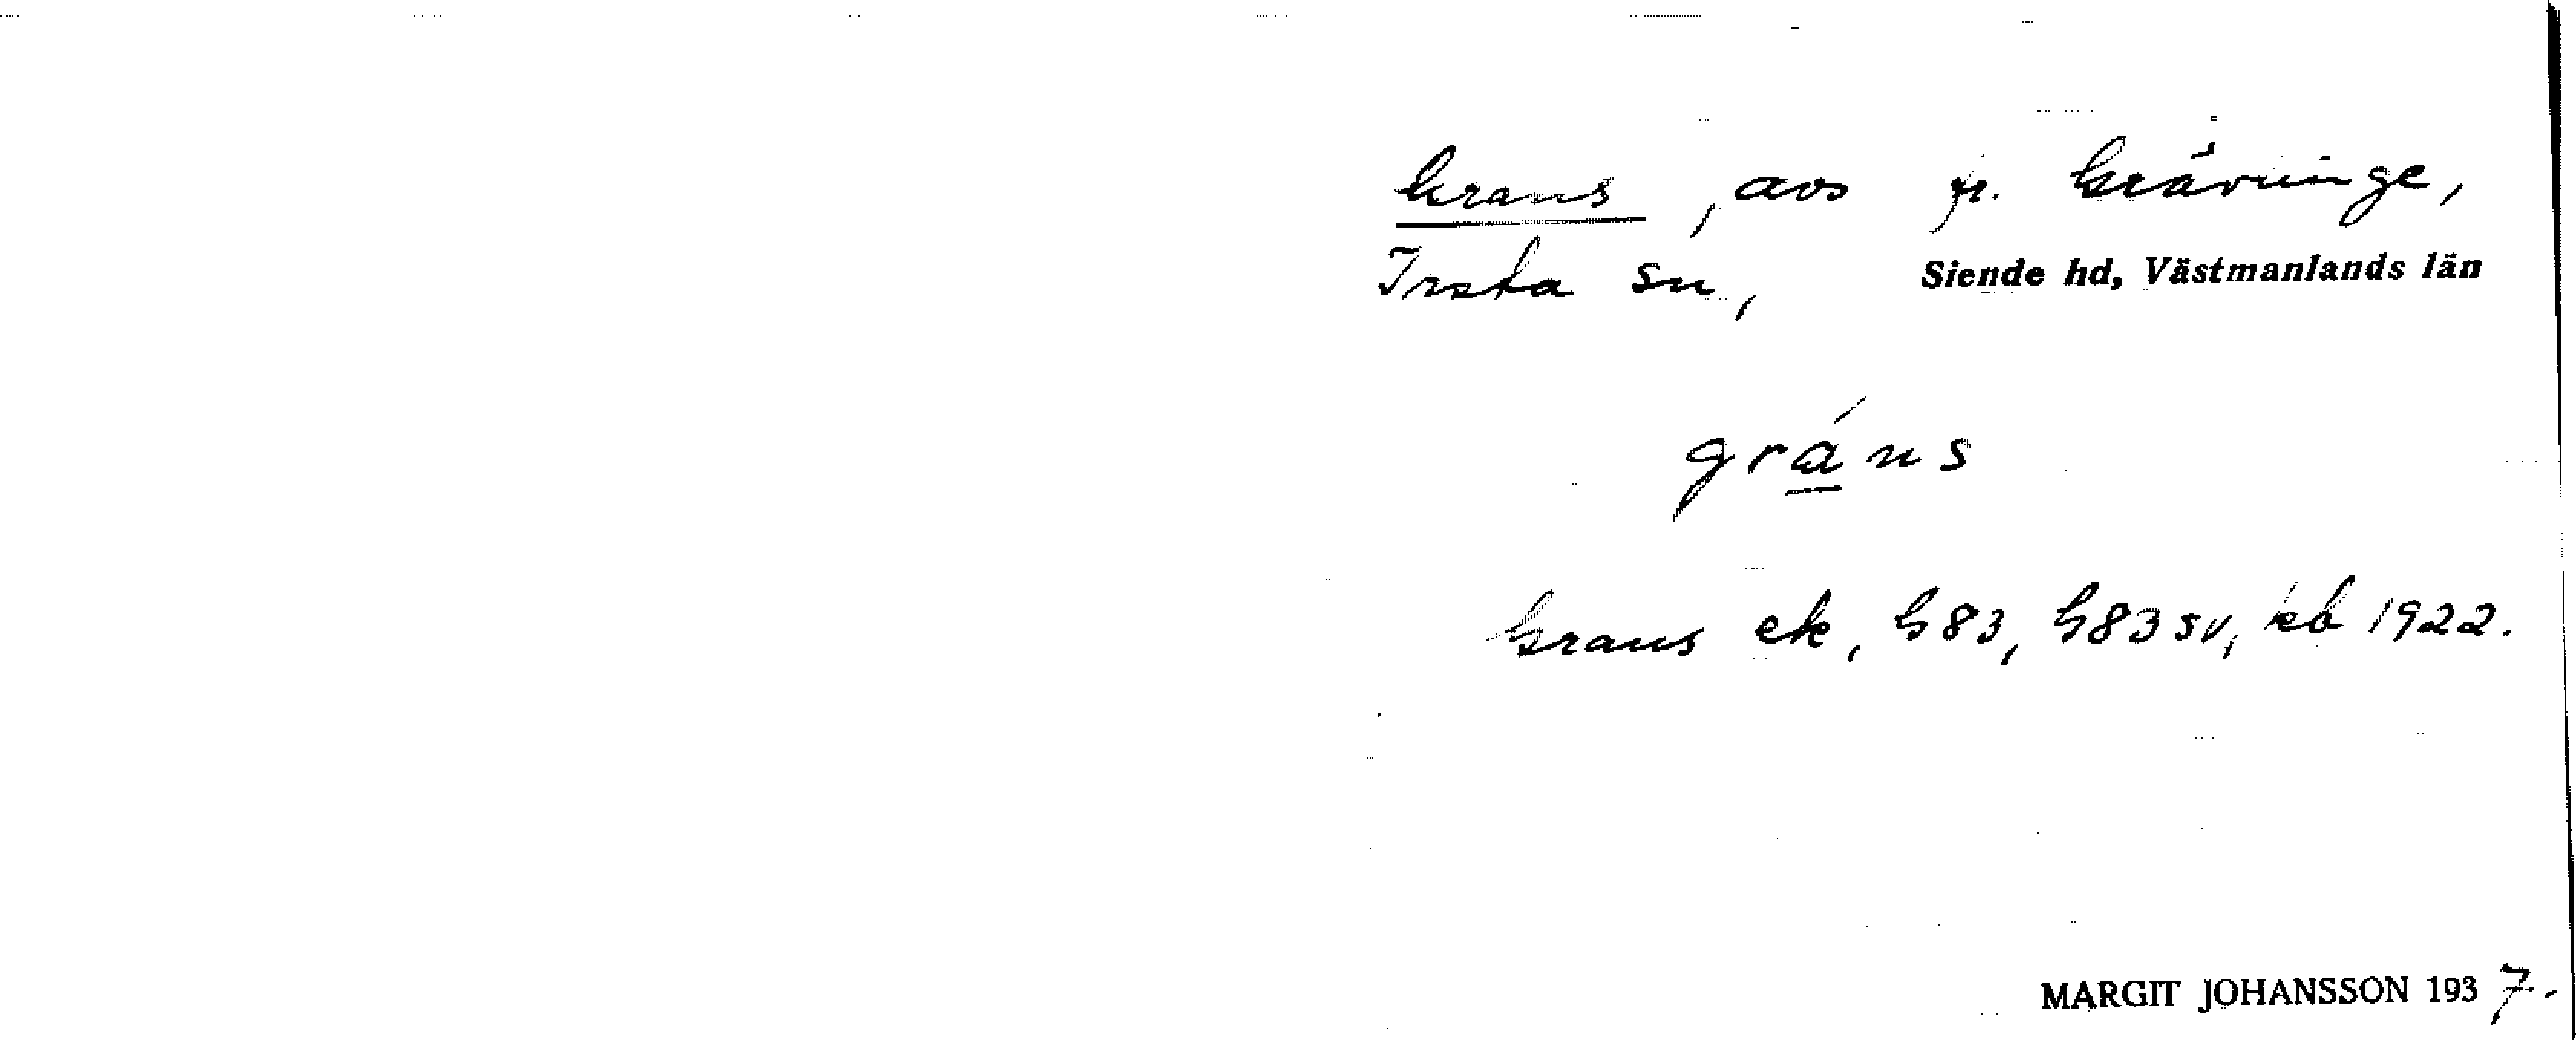 Grans, avs fr. Grävlinge,
Irsta sn, Siende hd, Västmanlands län
gráns
Grans ek, G83, G83 sv, kb 1922.
MARGIT JOHANSSON 1937.